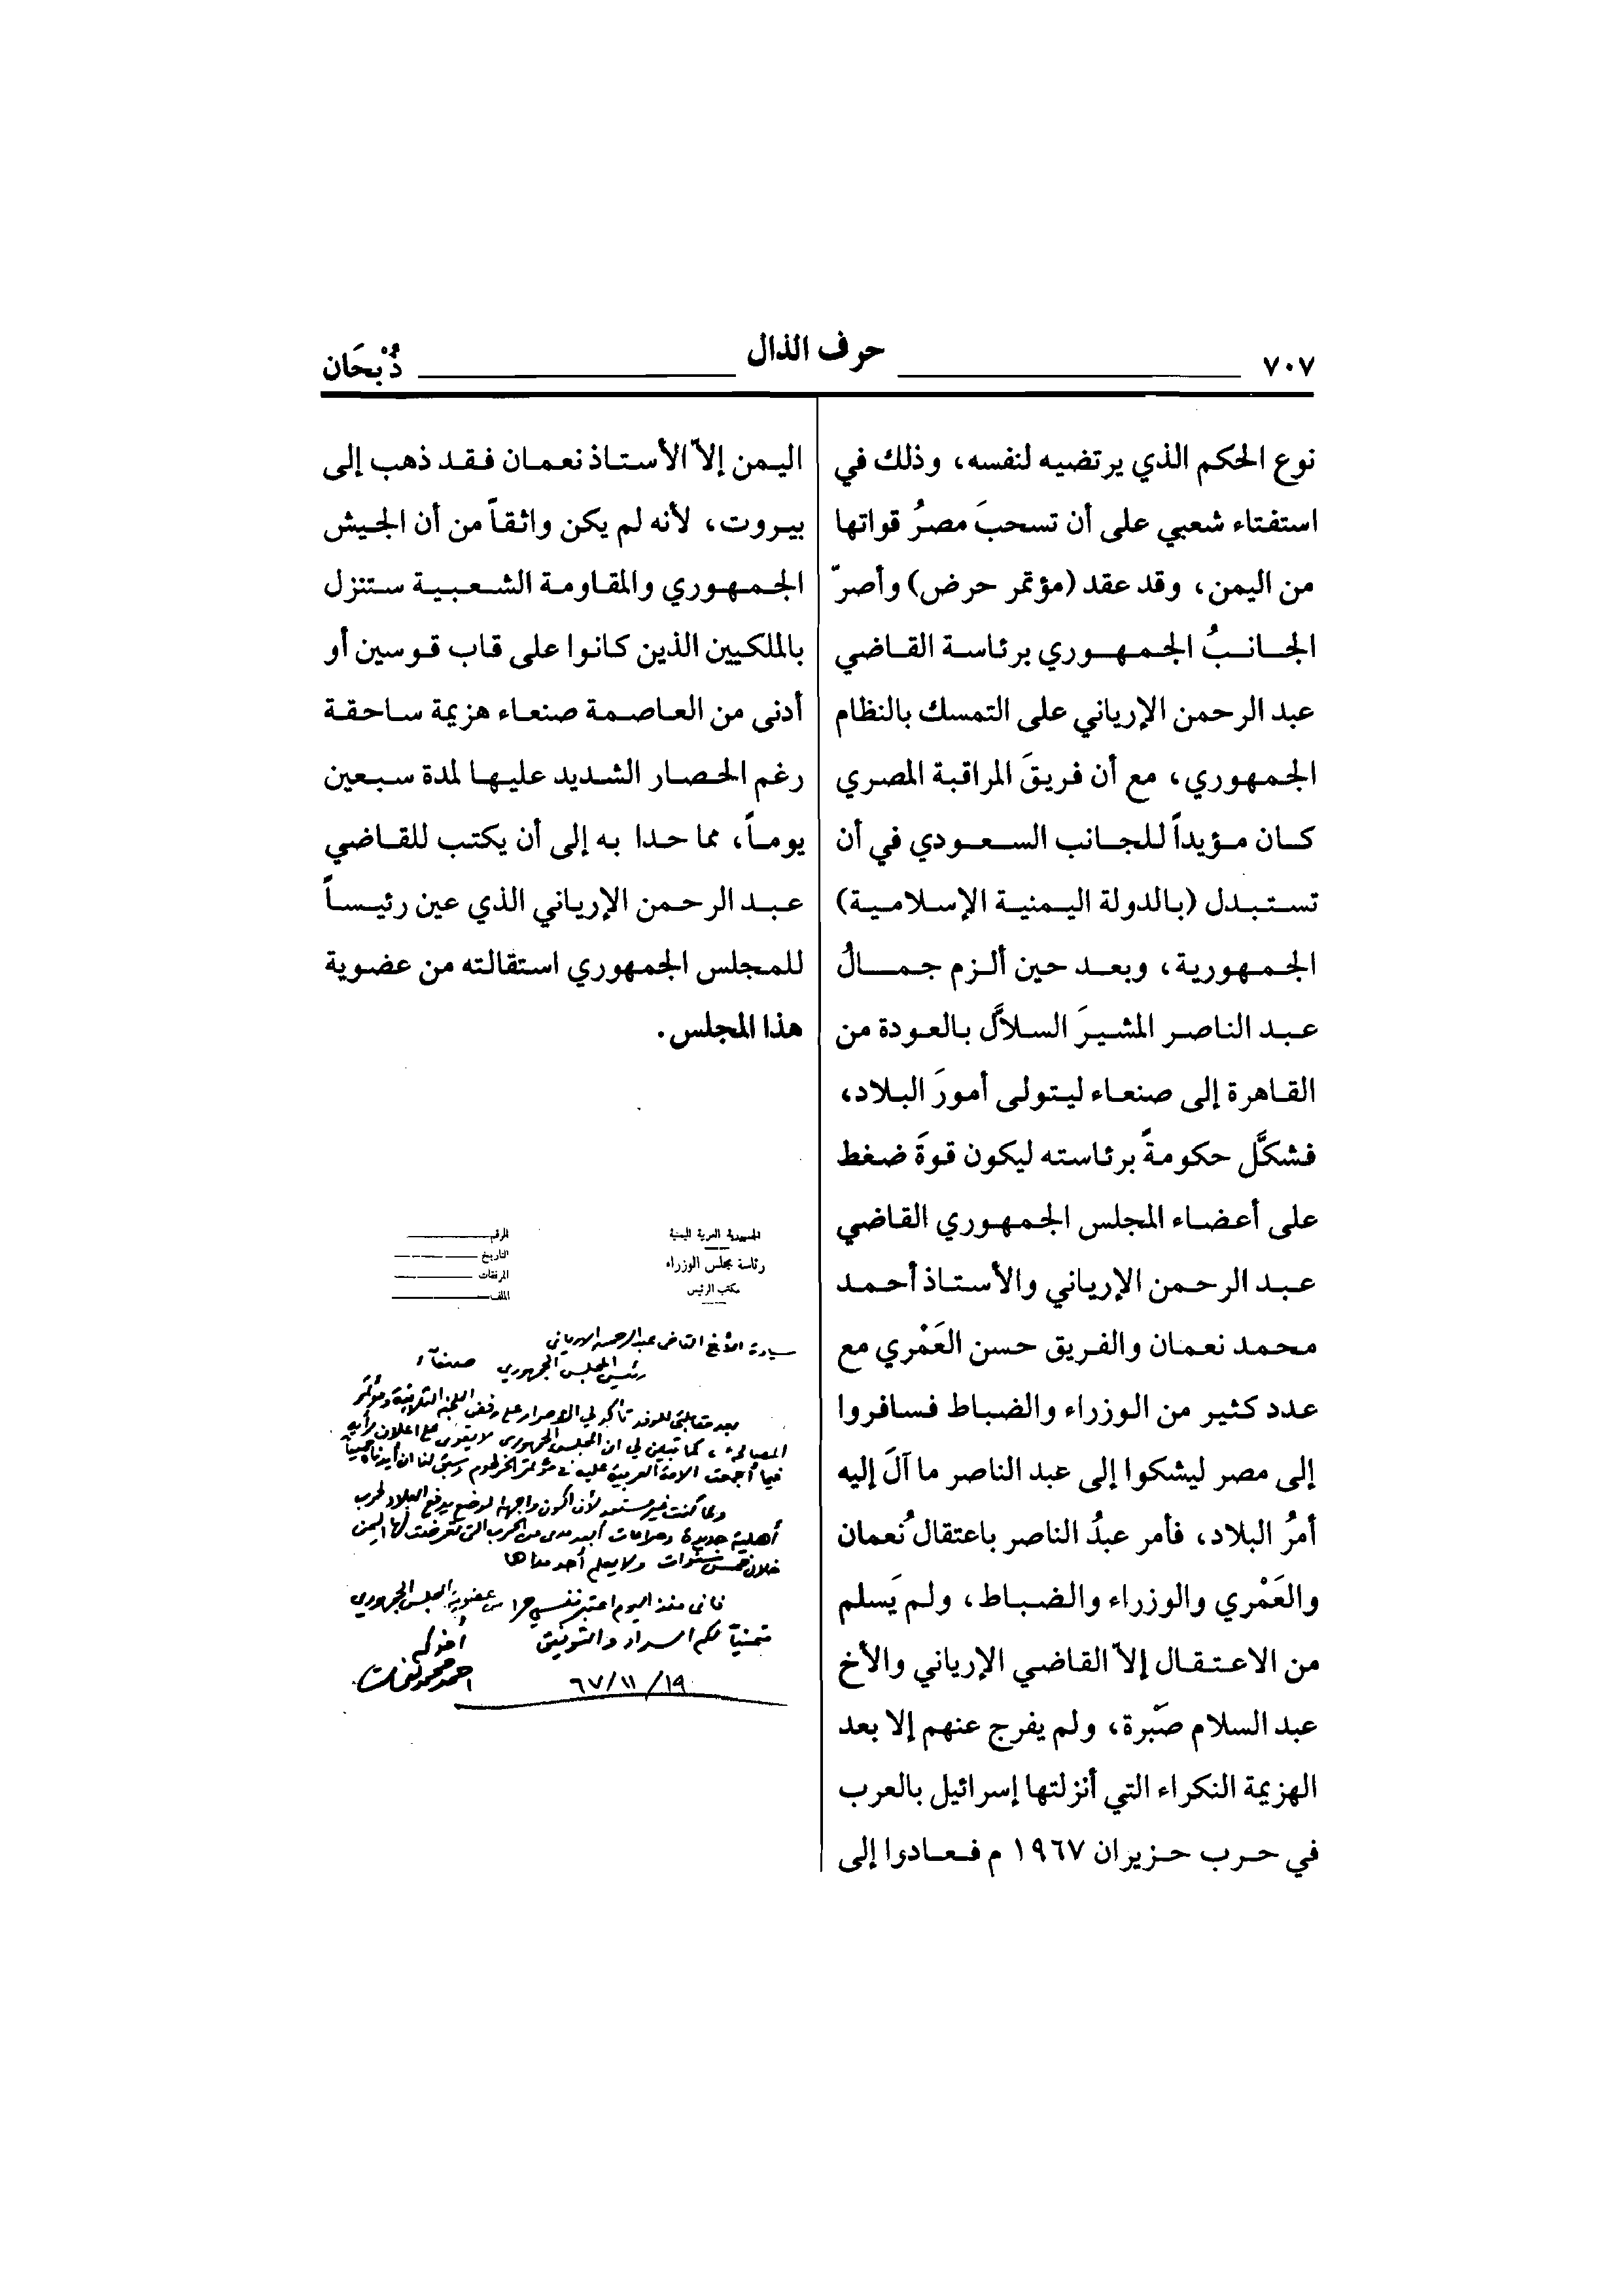 ٧٠٧
حرف الذال
ذُبْحَان
نوع الحكم الذي يرتضيه لنفسه، وذلك في
استفتاء شعبي على أن تسحبَ مصرُ قواتها
من اليمن، وقد عقد (مؤتمر حرض) وأصرّ
الجانبُ الجمهوري برئاسة القاضي
عبد الرحمن الإرياني على التمسك بالنظام
الجمهوري، مع أن فريقَ المراقبة المصري
كان مؤيداً للجانب السعودي في أن
تستبدل (بالدولة اليمنية الإسلامية)
الجمهورية، وبعد حين ألزم جمالُ
عبد الناصر المشيرَ السلاَّل بالعودة من
القاهرة إلى صنعاء ليتولى أمورَ البلاد،
فشكَّل حكومةً برئاسته ليكون قوةَ ضغط
على أعضاء المجلس الجمهوري القاضي
عبد الرحمن الإرياني والأستاذ أحمد
محمد نعمان والفريق حسن العَمْري مع
عدد كثير من الوزراء والضباط فسافروا
إلى مصر ليشكوا إلى عبد الناصر ما آلَ إليه
أمرُ البلاد، فأمر عبدُ الناصر باعتقال نُعمان
والعَمْري والوزراء والضباط، ولم يَسلم
من الاعتقال إلاّ القاضي الإرياني والأخ
عبد السلام صَبْرة، ولم يفرج عنهم إلا بعد
الهزيمة النكراء التي أنزلتها إسرائيل بالعرب
في حرب حزيران ١٩٦٧ م فعادوا إلى
اليمن إلاّ الأستاذ نعمان فقد ذهب إلى
بيروت، لأنه لم يكن واثقاً من أن الجيش
الجمهوري والمقاومة الشعبية ستنزل
بالملكيين الذين كانوا على قاب قوسين أو
أدنى من العاصمة صنعاء هزيمة ساحقة
رغم الحصار الشديد عليها لمدة سبعين
يوماً، مما حدا به إلى أن يكتب للقاضي
عبد الرحمن الإرياني الذي عين رئيساً
للمجلس الجمهوري استقالته من عضوية
هذا المجلس.
الجمهورية العربية اليمنية
رئاسة مجلس الوزراء
مكتب الرئيس
الرقم
التاريخ
المرفقات
الملف
سيادة الأخ القاضي عبد الرحمن الارياني
رئيس المجلس الجمهوري صنعاء
بعد مقابلتي للوفد تأكد لي الاصرار على رفض اللجنة الثلاثية ومؤتمر
المصالحة، كما تبين لي ان المجلس الجمهوري لا يقوى على اعلان رأيه
فيما أجمعت الامة العربية عليه في مؤتمر الخرطوم وسبق لنا ان أيدناه جميعاً
ولما كنت غير مستعد لأن أكون واجهة لوضع يدفع البلاد لحرب
أهلية جديدة وصراعات أبعد مدى من الحرب التي تعرضت لها اليمن
خلال خمس سنوات ولا يعلم أحد مداها
فاني منذ اليوم اعتبر نفسي حرا من عضوية المجلس الجمهوري
متمنياً لكم السداد والتوفيق
أخوكم
احمد محمد نعمان
١٩/١١/٦٧